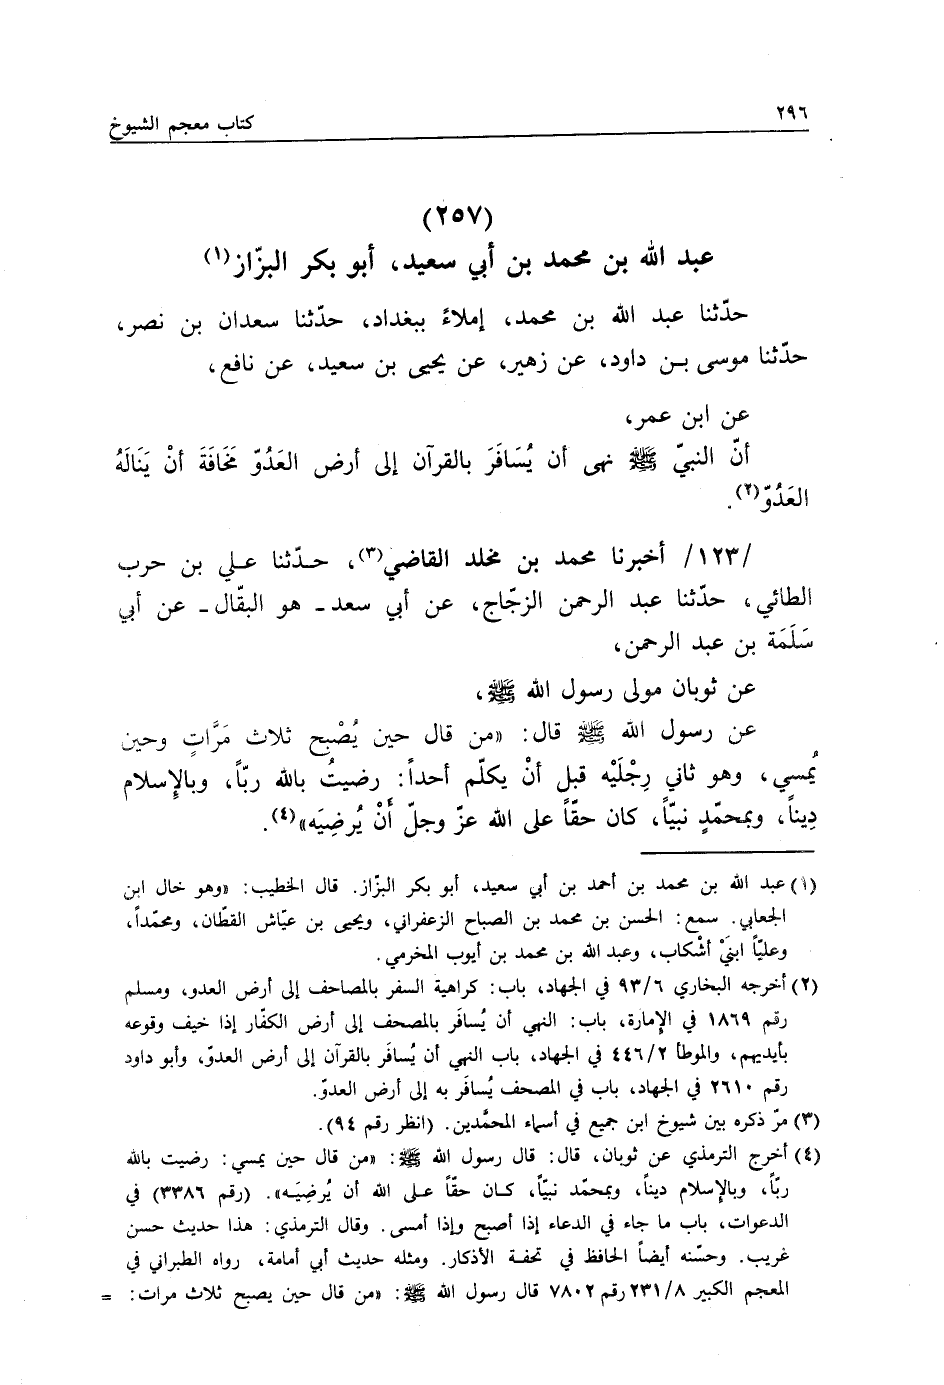 ٢٩٦
كتاب معجم الشيوخ
(٢٥٧)
عبد الله بن محمد بن أبي سعيد، أبو بكر البزّاز(١)
حدّثنا عبد الله بن محمد، إملاءً ببغداد، حدّثنا سعدان بن نصر،
حدّثنا موسى بـن داود، عن زهير، عن يحيى بن سعيد، عن نافع،
عن ابن عمر،
أنّ النبيّ ﷺ نهى أن يُسَافَرَ بالقرآن إلى أرض العَدُوّ مَخَافَةَ أنْ يَنَالَهُ
العَدُوّ(٢).
/١٢٣/ أخبرنا محمد بن مخلد القاضي(٣)، حـدّثنا عـلي بن حرب
الطائي، حدّثنا عبد الرحمن الزجّاج، عن أبي سعد ـ هو البقّال ـ عن أبي
سَلَمَة بن عبد الرحمن،
عن ثوبان مولى رسول الله ﷺ،
عن رسول الله ﷺ قال: «من قال حين يُصْبح ثلاث مَرَّاتٍ وحين
يُمسي، وهو ثاني رِجْلَيْه قبل أنْ يكلّم أحداً: رضيتُ بالله ربّاً، وبالإسلام
دِيناً، وبمحمّدٍ نبيّاً، كان حقّاً على الله عزّ وجلّ أَنْ يُرضِيَه»(٤).
(١) عبد الله بن محمد بن أحمد بن أبي سعيد، أبو بكر البزّاز. قال الخطيب: «وهو خال ابن
الجعابي. سمع: الحسن بن محمد بن الصباح الزعفراني، ويحيى بن عيّاش القطّان، ومحمّداً،
وعليّاً ابنَيْ أشْكاب، وعبد الله بن محمد بن أيوب المخرمي.
(٢) أخرجه البخاري ٩٣/٦ في الجهاد، باب: كراهية السفر بالمصاحف إلى أرض العدو، ومسلم
رقم ١٨٦٩ في الإمارة، باب: النهي أن يُسافَر بالمصحف إلى أرض الكفّار إذا خيف وقوعه
بأيديهم، والموطأ ٤٤٦/٢ في الجهاد، باب النهي أن يُسافَر بالقرآن إلى أرض العدوّ، وأبو داود
رقم ٢٦١٠ في الجهاد، باب في المصحف يُسافَر به إلى أرض العدوّ.
(٣) مرّ ذكره بين شيوخ ابن جميع في أسماء المحمَّدين. (انظر رقم ٩٤).
(٤) أخرج الترمذي عن ثوبان، قال: قال رسول الله ﷺ: «من قال حين يمسي: رضيت بالله
ربّاً، وبالإسلام ديناً، وبمحمّد نبيّاً، كـان حقّاً عـلى الله أن يُرضِيَـه». (رقم ٣٣٨٦) في
الدعوات، باب ما جاء في الدعاء إذا أصبح وإذا أمسى. وقال الترمذي: هذا حديث حسن
غريب. وحسّنه أيضاً الحافظ في تحفة الأذكار. ومثله حديث أبي أمامة، رواه الطبراني في
المعجم الكبير ٢٣١/٨ رقم ٧٨٠٢ قال رسول الله ﷺ: «من قال حين يصبح ثلاث مرات: =